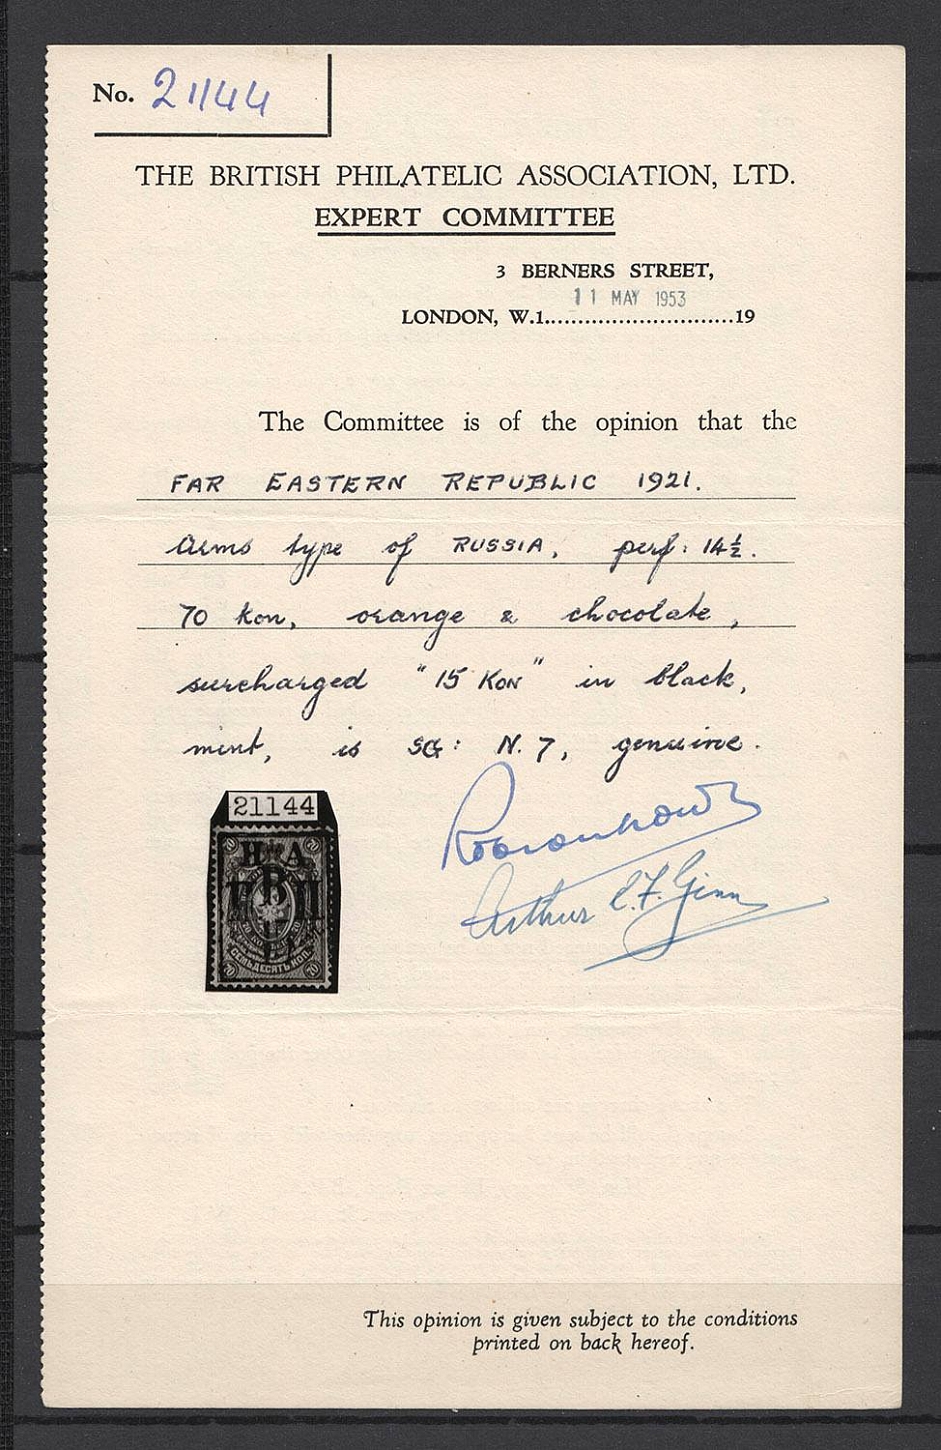 No. 21144
THE BRITISH PHILATELIC ASSOCIATION, LTD.
EXPERT COMMITTEE
3 BERNERS STREET,
11 MAY 1953
LONDON, W.1.............................19
The Committee is of the opinion that the
FAR EASTERN REPUBLIC 1921.
Arms type of RUSSIA, perf: 14½.
70 kon, orange & chocolate,
surcharged "15 KON" in black,
mint, is SG: N.7, genuine.
21144
70 70
Н А
Д В П
СЕМЬДЕСЯТЪ КОП.
70 70
Arthur E.F. Ginn
This opinion is given subject to the conditions
printed on back hereof.